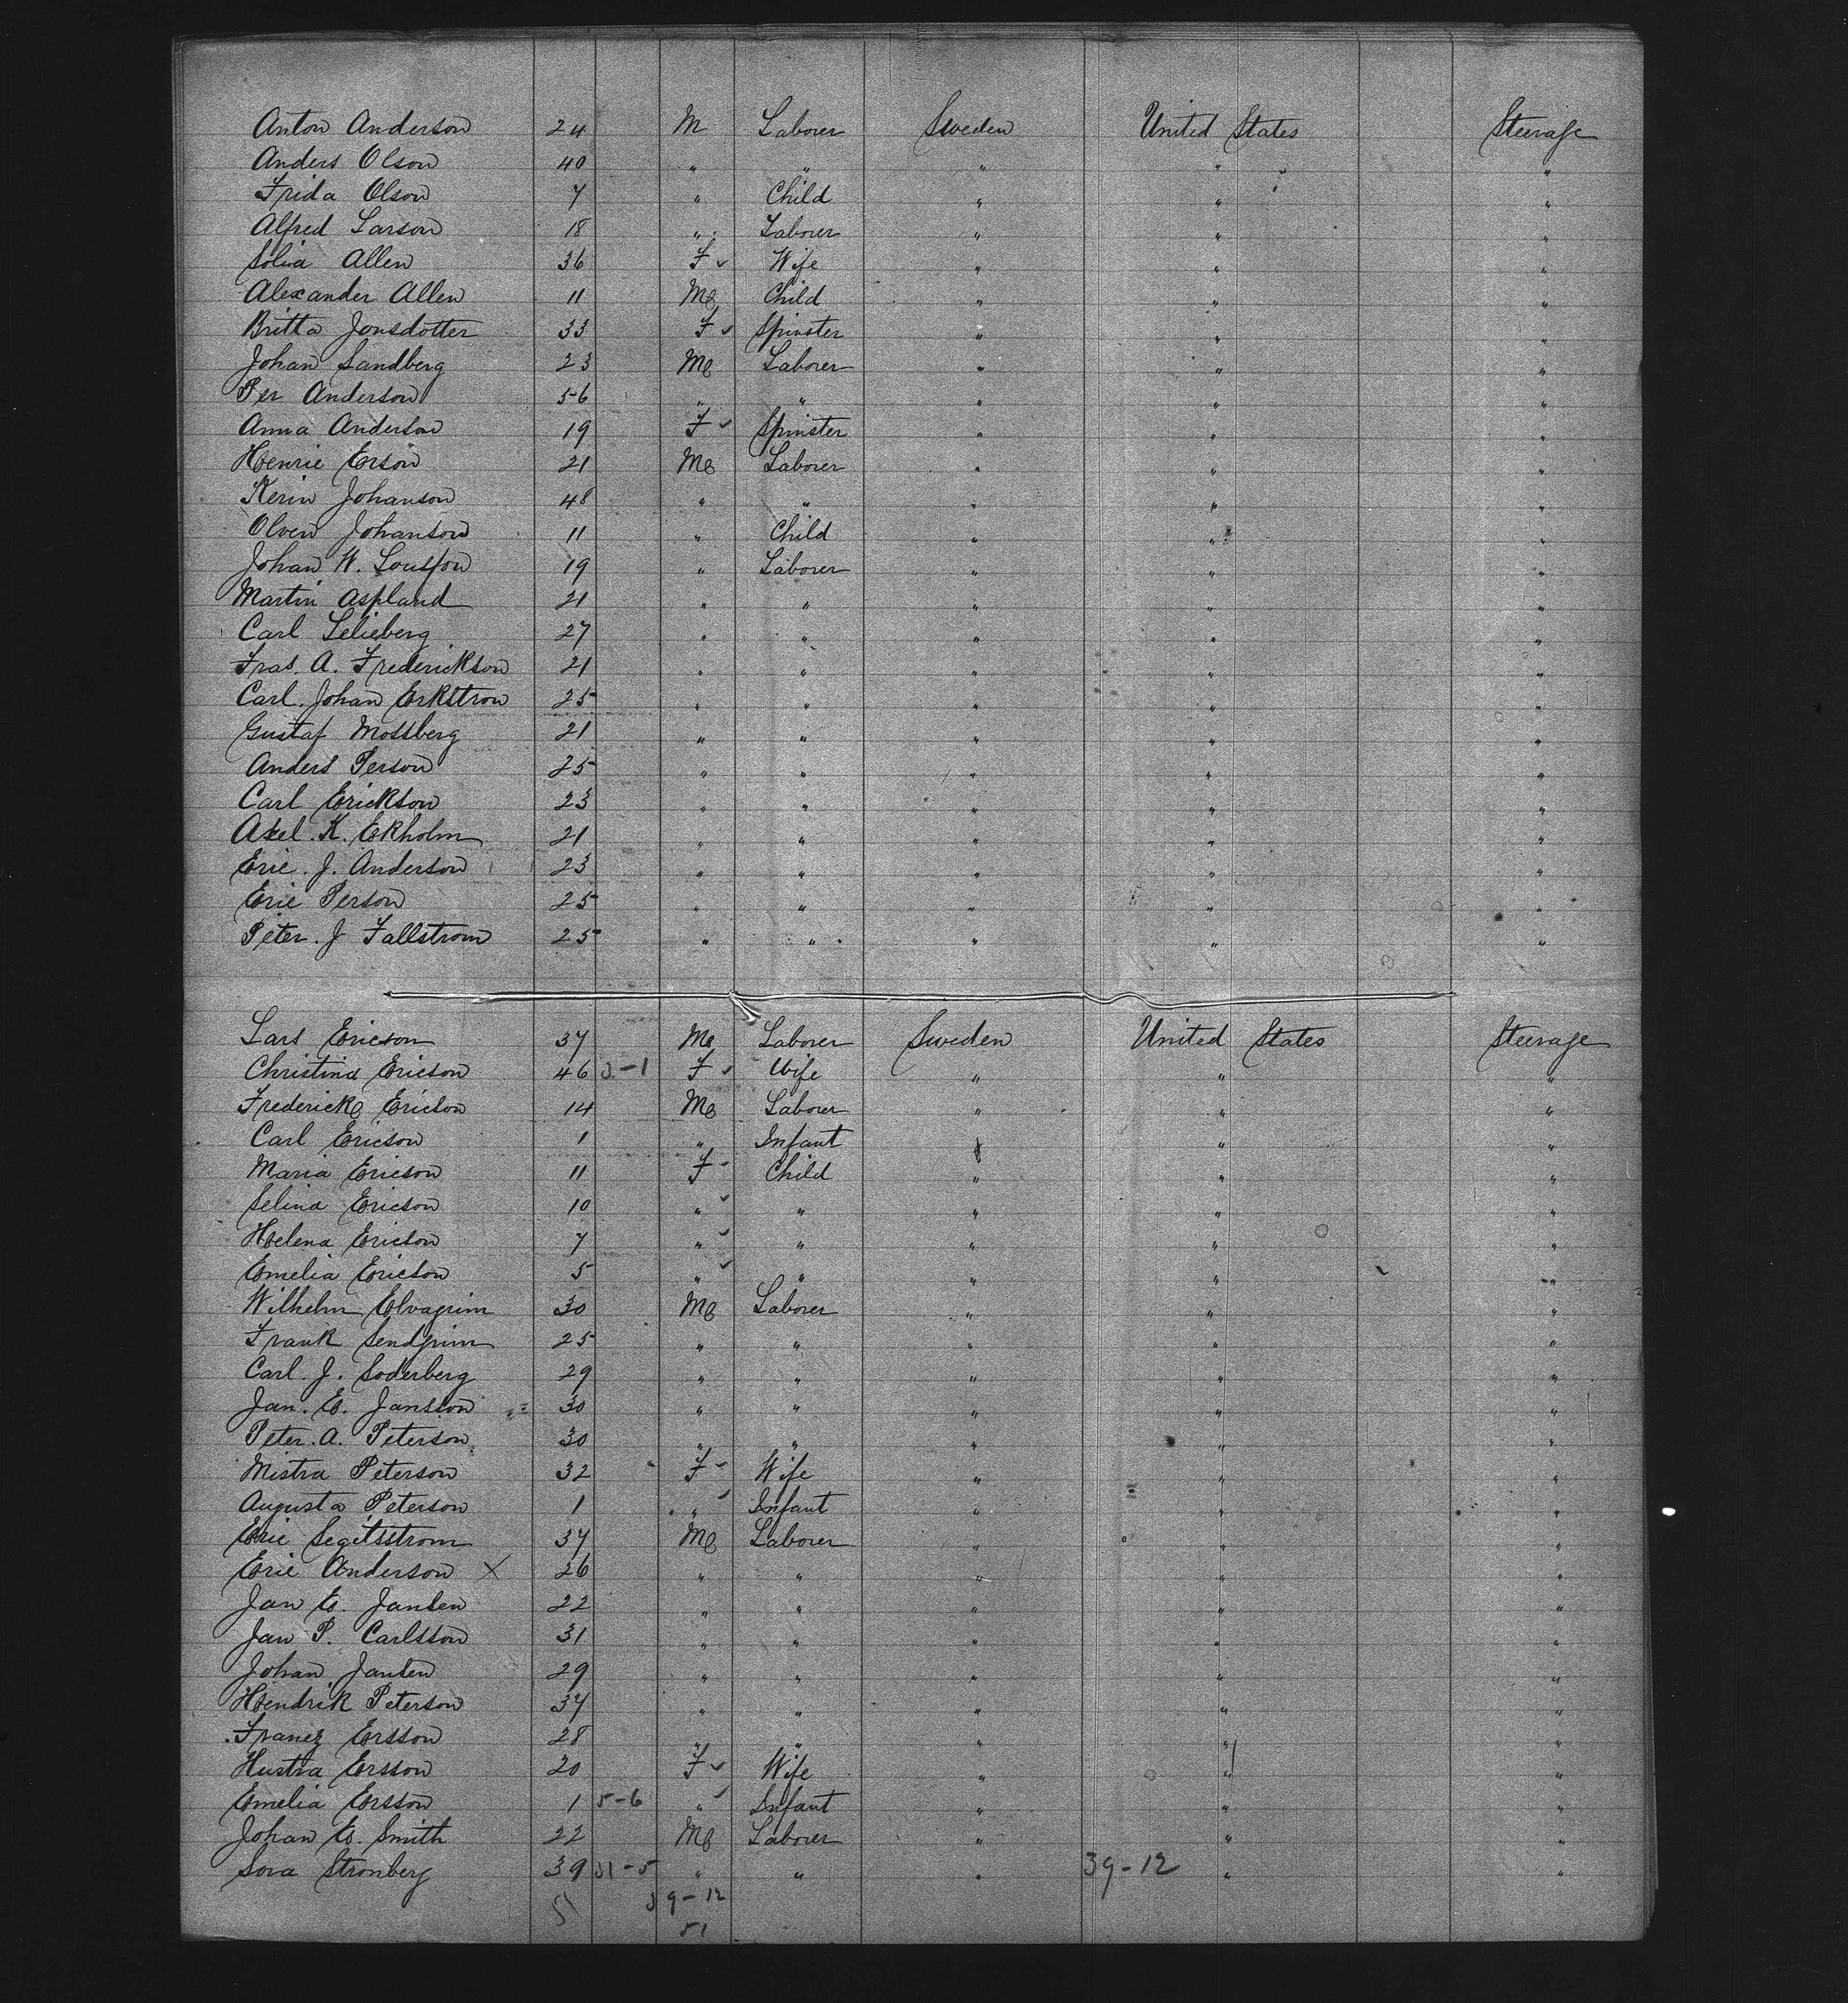 Anton Anderson 24 M Laborer Sweden United States Steerage
Anders Olson 40 " " " " "
Frida Olson 7 " Child " " "
Alfred Larson 18 " Laborer " " "
Solia Allen 36 F ✓ Wife " " "
Alexander Allen 11 M Child " " "
Britta Jonsdotter 33 F ✓ Spinster " " "
Johan Sandberg 23 M Laborer " " "
Per Anderson 56 " " " " "
Anna Anderson 19 F ✓ Spinster " " "
Henrie Erson 21 M Laborer " " "
Kerin Johanson 48 " " " " "
Olven Johanson 11 " Child " " "
Johan W. 19 " Laborer " " "
Martin Aspland 21 " " " " "
Carl Lelieberg 27 " " " " "
Fras. A. Frederickson 21 " " " " "
Carl. Johan Erkstrom 25 " " " " "
Gustaf Mossberg 21 " " " " "
Anders Person 25 " " " " "
Carl Erickson 23 " " " " "
Axel. K. Ekholm 21 " " " " "
Eric. J. Anderson 23 " " " " "
Eric Person 25 " " " " "
Peter. J Fallstrom 25 " " " " "
Lars Ericson 37 M Laborer Sweden United States Steerage
Christina Ericson 46 3-1 F ✓ Wife " " "
Frederick Ericson 14 M Laborer " " "
Carl Ericson 1 " Infant " " "
Maria Ericson 11 F - Child " " "
Selina Ericson 10 " ✓ " " " "
Helena Ericson 7 " ✓ " " " "
Emelia Ericson 5 " ✓ " " " "
Wilhelm Elvagrim 30 M Laborer " " "
Frank Sendgrim 25 " " " " "
Carl. J. Soderberg 29 " " " " "
Jan. E. Jansson 30 " " " " "
Peter. A. Peterson 30 " " " " "
Mistra Peterson 32 F ✓ Wife " " "
Augusta Peterson 1 " ✓ Infant " " "
Eric Segitsstrom 37 M Laborer " " "
Eric Anderson X 26 " " " " "
Jan E. Jansen 22 " " " " "
Jan P. Carlsson 31 " " " " "
Johan Jansen 29 " " " " "
Hendrik Peterson 37 " " " " "
Franez Ersson 28 " " " " "
Hustra Ersson 20 F ✓ Wife " " "
Emelia Ersson 1 5-6 " ✓ Infant " " "
Johan E. Smith 22 M Laborer " " "
Sova Stromberg 39 31-5 " " " 39-12 " "
51 39-12
51